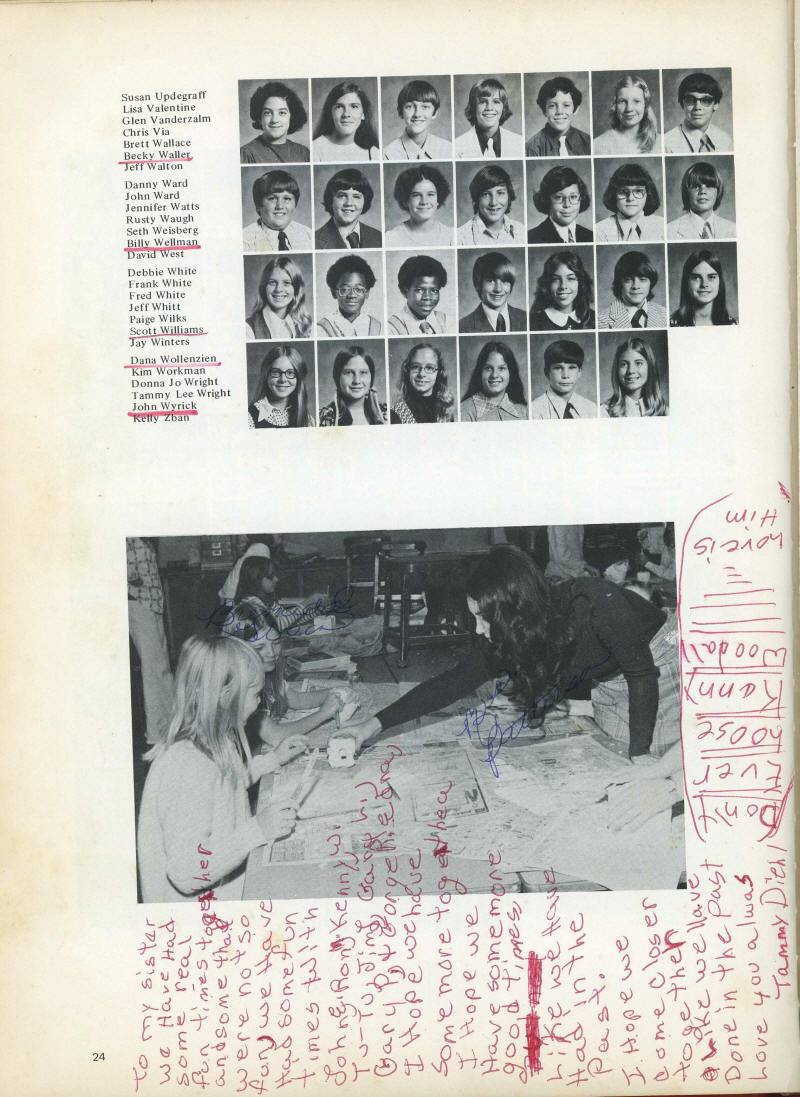 Susan Updegraff
Lisa Valentine
Glen Vanderzalm
Chris Via
Brett Wallace
Becky Waller
Jeff Walton
Danny Ward
John Ward
Jennifer Watts
Rusty Waugh
Seth Weisberg
Billy Wellman
David West
Debbie White
Frank White
Fred White
Jeff Whitt
Paige Wilks
Scott Williams
Jay Winters
Dana Wollenzien
Kim Workman
Donna Jo Wright
Tammy Lee Wright
John Wyrick
Kelly Zban
To my sister
we Have Had
some real
fun times together
and some that
were not so
fun we have
Had some fun
times with
I Hope we have
some more together
I Hope we
Have some more
good times
Like we Have
Had in the
Past.
I Hope we
come closer
together
Like we Have
Done in the Past
Love you alwas
Tammy Diehl
Love is
Him
24